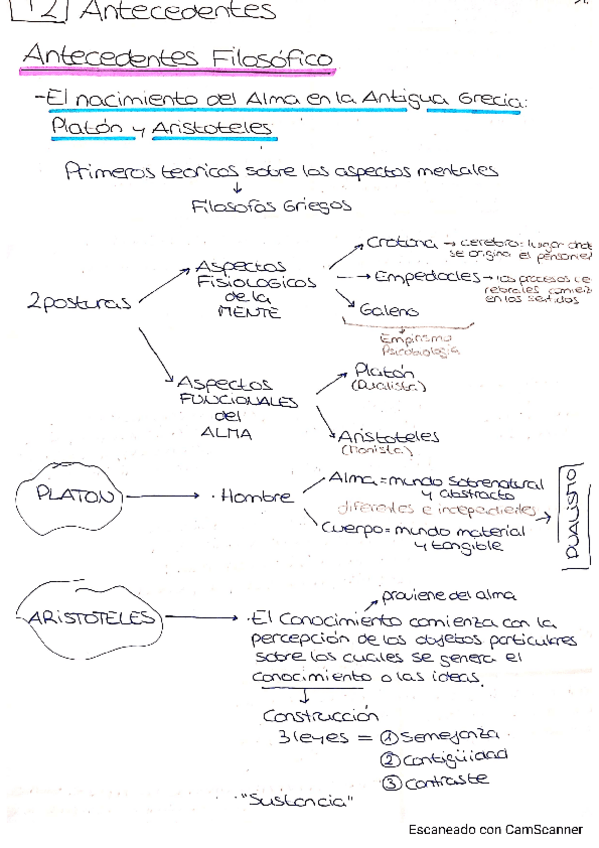 1.2 Antecedentes
Antecedentes Filosófico
-El nacimiento del Alma en la Antigua Grecia:
Platón y Aristoteles
Primeros teoricos sobre los aspectos mentales
Filosofos Griegos
2 posturas
Aspectos
FISIOLOGICOS
de la
MENTE
Crotona → cerebro: lugar
se origina el
Empedocles → los procesos
en los
Galeno
Empirismo
Psicobiología
Aspectos
FUNCIONALES
del
ALMA
Platón
(Dualista)
Aristoteles
(Monista)
PLATON
· Hombre
Alma = mundo sobrenatural
y abstracto
diferentes e independientes
Cuerpo = mundo material
y tangible
DUALISMO
ARISTOTELES
proviene del alma
·El conocimiento comienza con la
percepción de los objetos particulares
sobre los cuales se genera el
conocimiento o las ideas.
Construcción
3 leyes = ① Semejanza
② Contigüidad
③ Contraste
·"Sustancia"
Escaneado con CamScanner